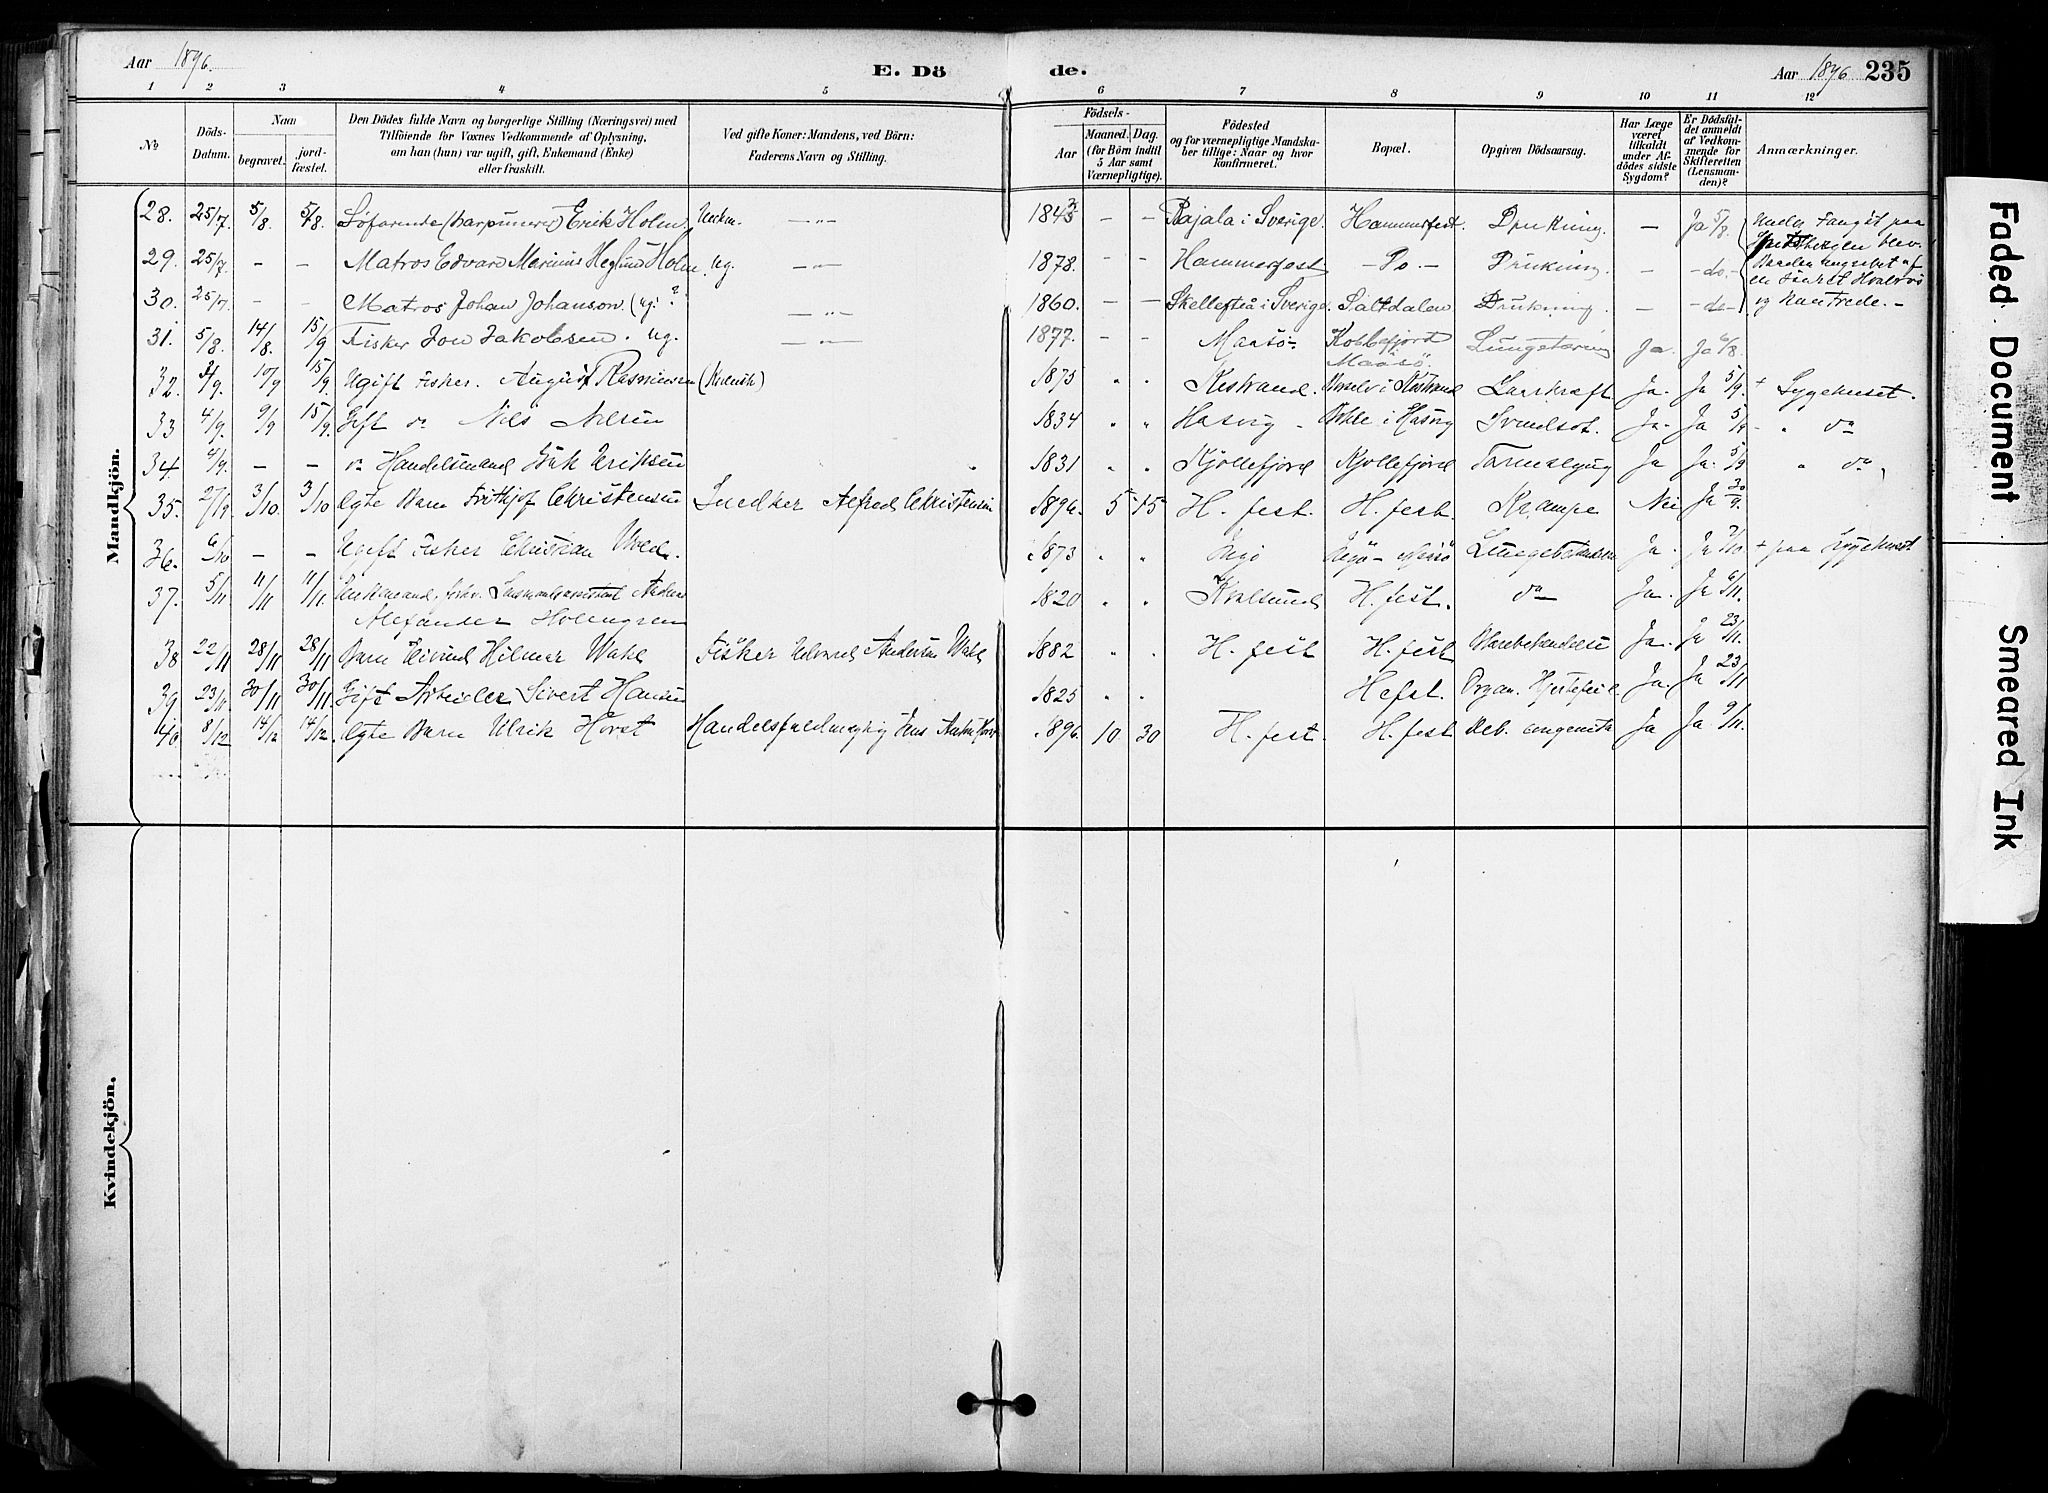 Aar 1896.
E. Dö de.
Aar 1896 235
1 2 3 4 5 6 7 8 9 10 11 12
No
Döds-Datum.
Naar
begravet.
jord-fæstet.
Den Dödes fulde Navn og borgerlige Stilling (Næringsvei) med
Tilföiende for Voxnes Vedkommende af Oplysning,
om han (hun) var ugift, gift, Enkemand (Enke)
eller fraskilt.
Ved gifte Koner: Mandens, ved Börn:
Faderens Navn og Stilling.
Födsels-
Aar
Maaned. Dag.
(for Börn indtil
5 Aar samt
Værnepligtige).
Födested
og for værnepligtige Mandska-
ber tillige: Naar og hvor
konfirmeret.
Bopæl.
Opgiven Dödsaarsag.
Har Læge
været
tilkaldt
under Af-
dödes sidste
Sygdom?
Er Dödsfal-
det anmeldt
af Vedkom-
mende for
Skifteretten
(Lensman-
den)?
Anmærkninger.
Mandkjön.
28. 25/7. 5/8. 5/8. Söfarende (harpunerer) Erik Holm. — " — 1843 — — Pajala i Sverige. Hammerfest. Drukning. — Ja 5/8. Under Fangst paa
Spitsbergen blev
29. 25/7. — — Matros Edvard Marinius Heglund Holm. ug. — " — 1878. — — Hammerfest — Do. — Drukning. — — do — Baaden angrebet af
en såret Hvalros
30. 25/7. — — Matros Johan Johanson. (ug. ? — " — 1860. — — Skellefteå i Sverige. Saltdalen Drukning. — — do — og kæntrede. —
31. 5/8. 14/8. 15/9 Fisker Jon Jakobsen. ug. — " — 1877. — — Maasö — Kobbefjord Maasö. Lungetæring Ja. Ja 6/8.
32. 3/9. 10/9 15/9. Ugift Fisker. August Rasmussen (Kvensk) 1875 " " Kistrand. i Kistrand Ja. Ja 5/9. + Sygehuset.
33 4/9. 9/9 15/9. Gift do Nils Nilsen 1834 " " Hasvig i Hasvig Ja. Ja 5/9 - " do
34. 4/9. — — do Handelsmand Erik Eriksen 1831 " " Kjöllefjord Kjöllefjord Tarmslyng Ja Ja. 5/9 " do
35. 27/9 3/10 3/10 Egte Barn Frithjof Christensen Snedker Alfred Christensen 1896. 5 15 H.fest. H.fest. Krampe Nei Ja 30/9.
36. 6/10 — — Ugift Fisker Christian 1873 " " Ingö Ingö - Maasö Lungebetændelse Ja. Ja 7/10 + paa Sygehuset
37. 5/11 11/11 11/11. Enkemand, forhv. Anders
Alexander Holmgren 1820 " " Kvalsund H.fest. do Ja. Ja 6/11.
38 22/11 28/11 28/11 Barn Eivind Hilmar Wahl Fisker Edvard Andersen Wahl 1882 " " H.fest H.fest Ja. Ja 23/11.
39 23/11 30/11 30/11. Gift Arbeider Sivert Hansen 1825 " " H.fest. Organ. Hjertefeil Ja. Ja 23/11
40 8/12 14/12 14/12. Egte Barn Ulrik Horst Handelsfuldmægtig Jens Horst 1896. 10 30 H.fest. H.fest Deb. congenita Ja Ja 9/11.
Kvindekjön.
Faded Document
Smeared Ink